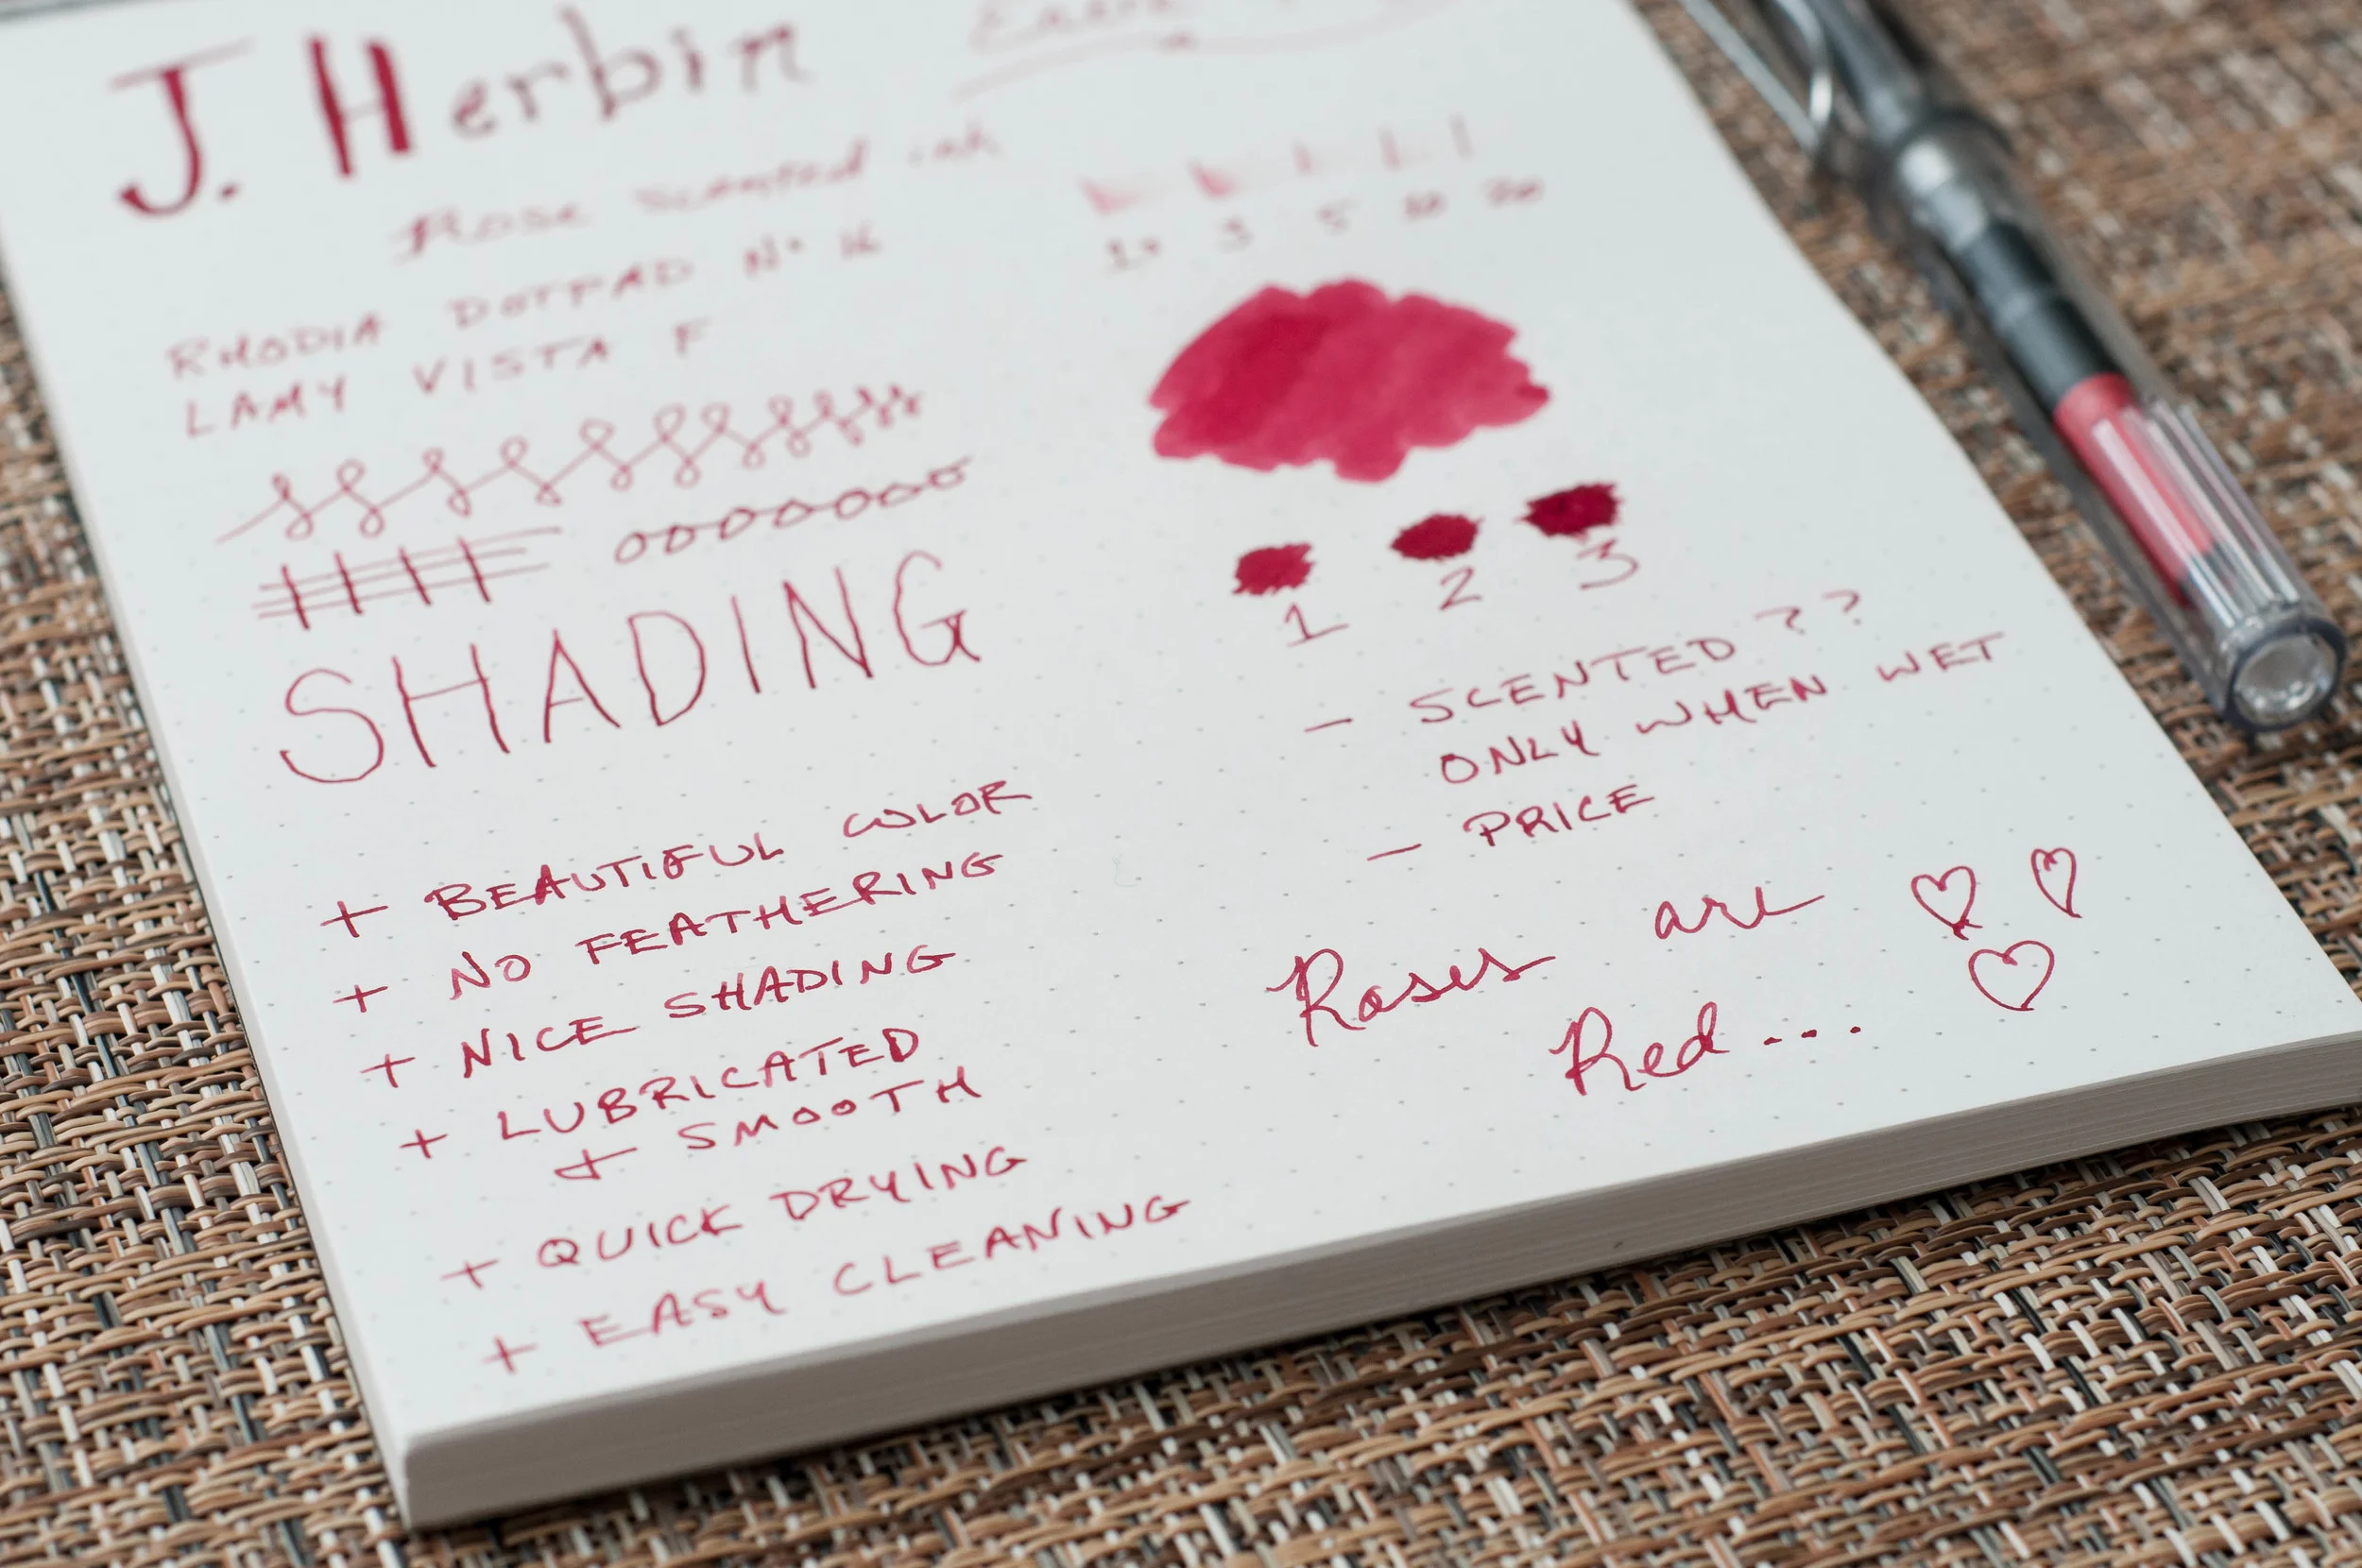 J. Herbin
Rose scented ink
RHODIA DOTPAD Nº 16
LAMY VISTA F
1s 3 5 10 20
SHADING
1 2 3
+ BEAUTIFUL COLOR
+ NO FEATHERING
+ NICE SHADING
+ LUBRICATED
+ SMOOTH
+ QUICK DRYING
+ EASY CLEANING
- SCENTED??
ONLY WHEN WET
- PRICE
Roses are
Red...